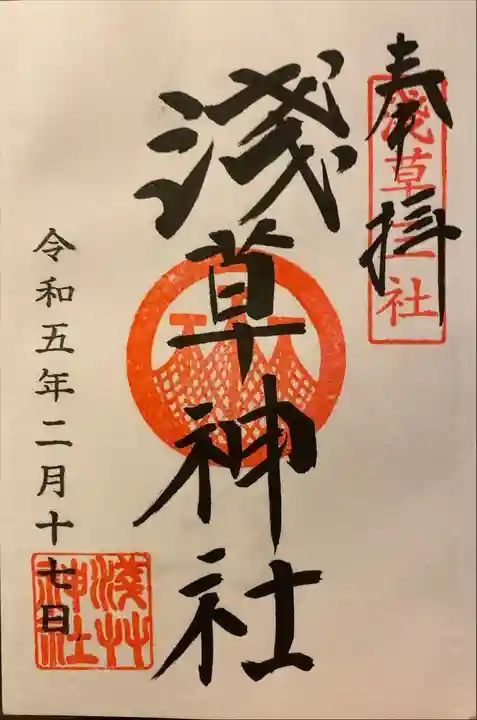 奉拝
淺草三社
淺草神社
令和五年二月十七日
淺草
神社